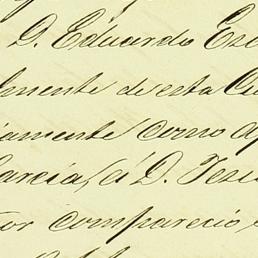 D. Eduardo Esc
lmente de esta Ciu
iamente como ap
García, á D. Jesu
tor compareció